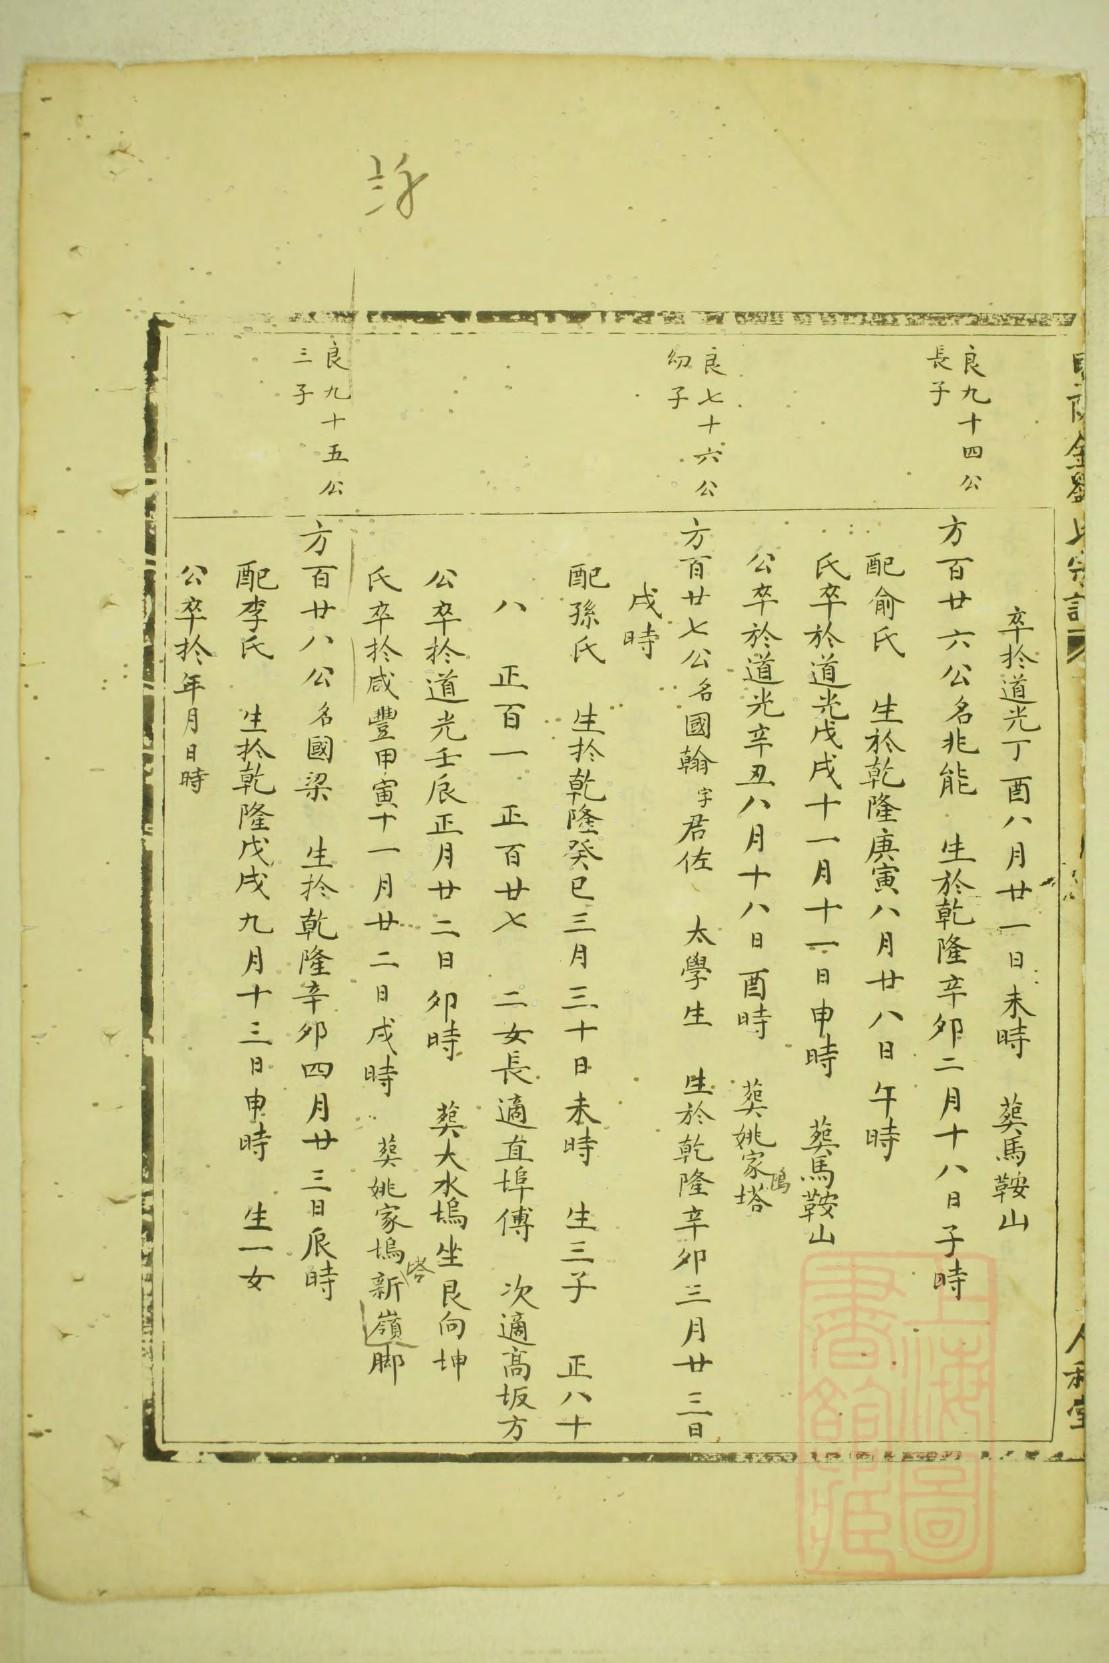 卒扵道光丁酉八月廿一日未時　葬馬鞍山
良九十四公
長子
方百廿六公名兆能　生於乾隆辛卯二月十八日子時
配俞氏　生於乾隆庚寅八月廿八日午時
氏卒於道光戊戌十一月十一日申時　葬馬鞍山
公卒於道光辛丑八月十八日酉時　葬姚家塢塔
良七十六公
幼子
方百廿七公名國翰字君佐　太學生　生於乾隆辛卯三月廿三日
戌時
配孫氏　生扵乾隆癸巳三月三十日未時　生三子　正八十
八　正百一　正百廿七　二女長適直埠傅　次適高坂方
公卒扵道光壬辰正月廿二日卯時　葬大水塢坐艮向坤
氏卒扵咸豐甲寅十一月廿二日戌時　葬姚家塢塔新嶺脚
良九十五公
三子
方百廿八公名國梁　生扵乾隆辛卯四月廿三日辰時
配李氏　生扵乾隆戊戌九月十三日申時　生一女
公卒扵年月日時
人和堂
上海圖
書館藏